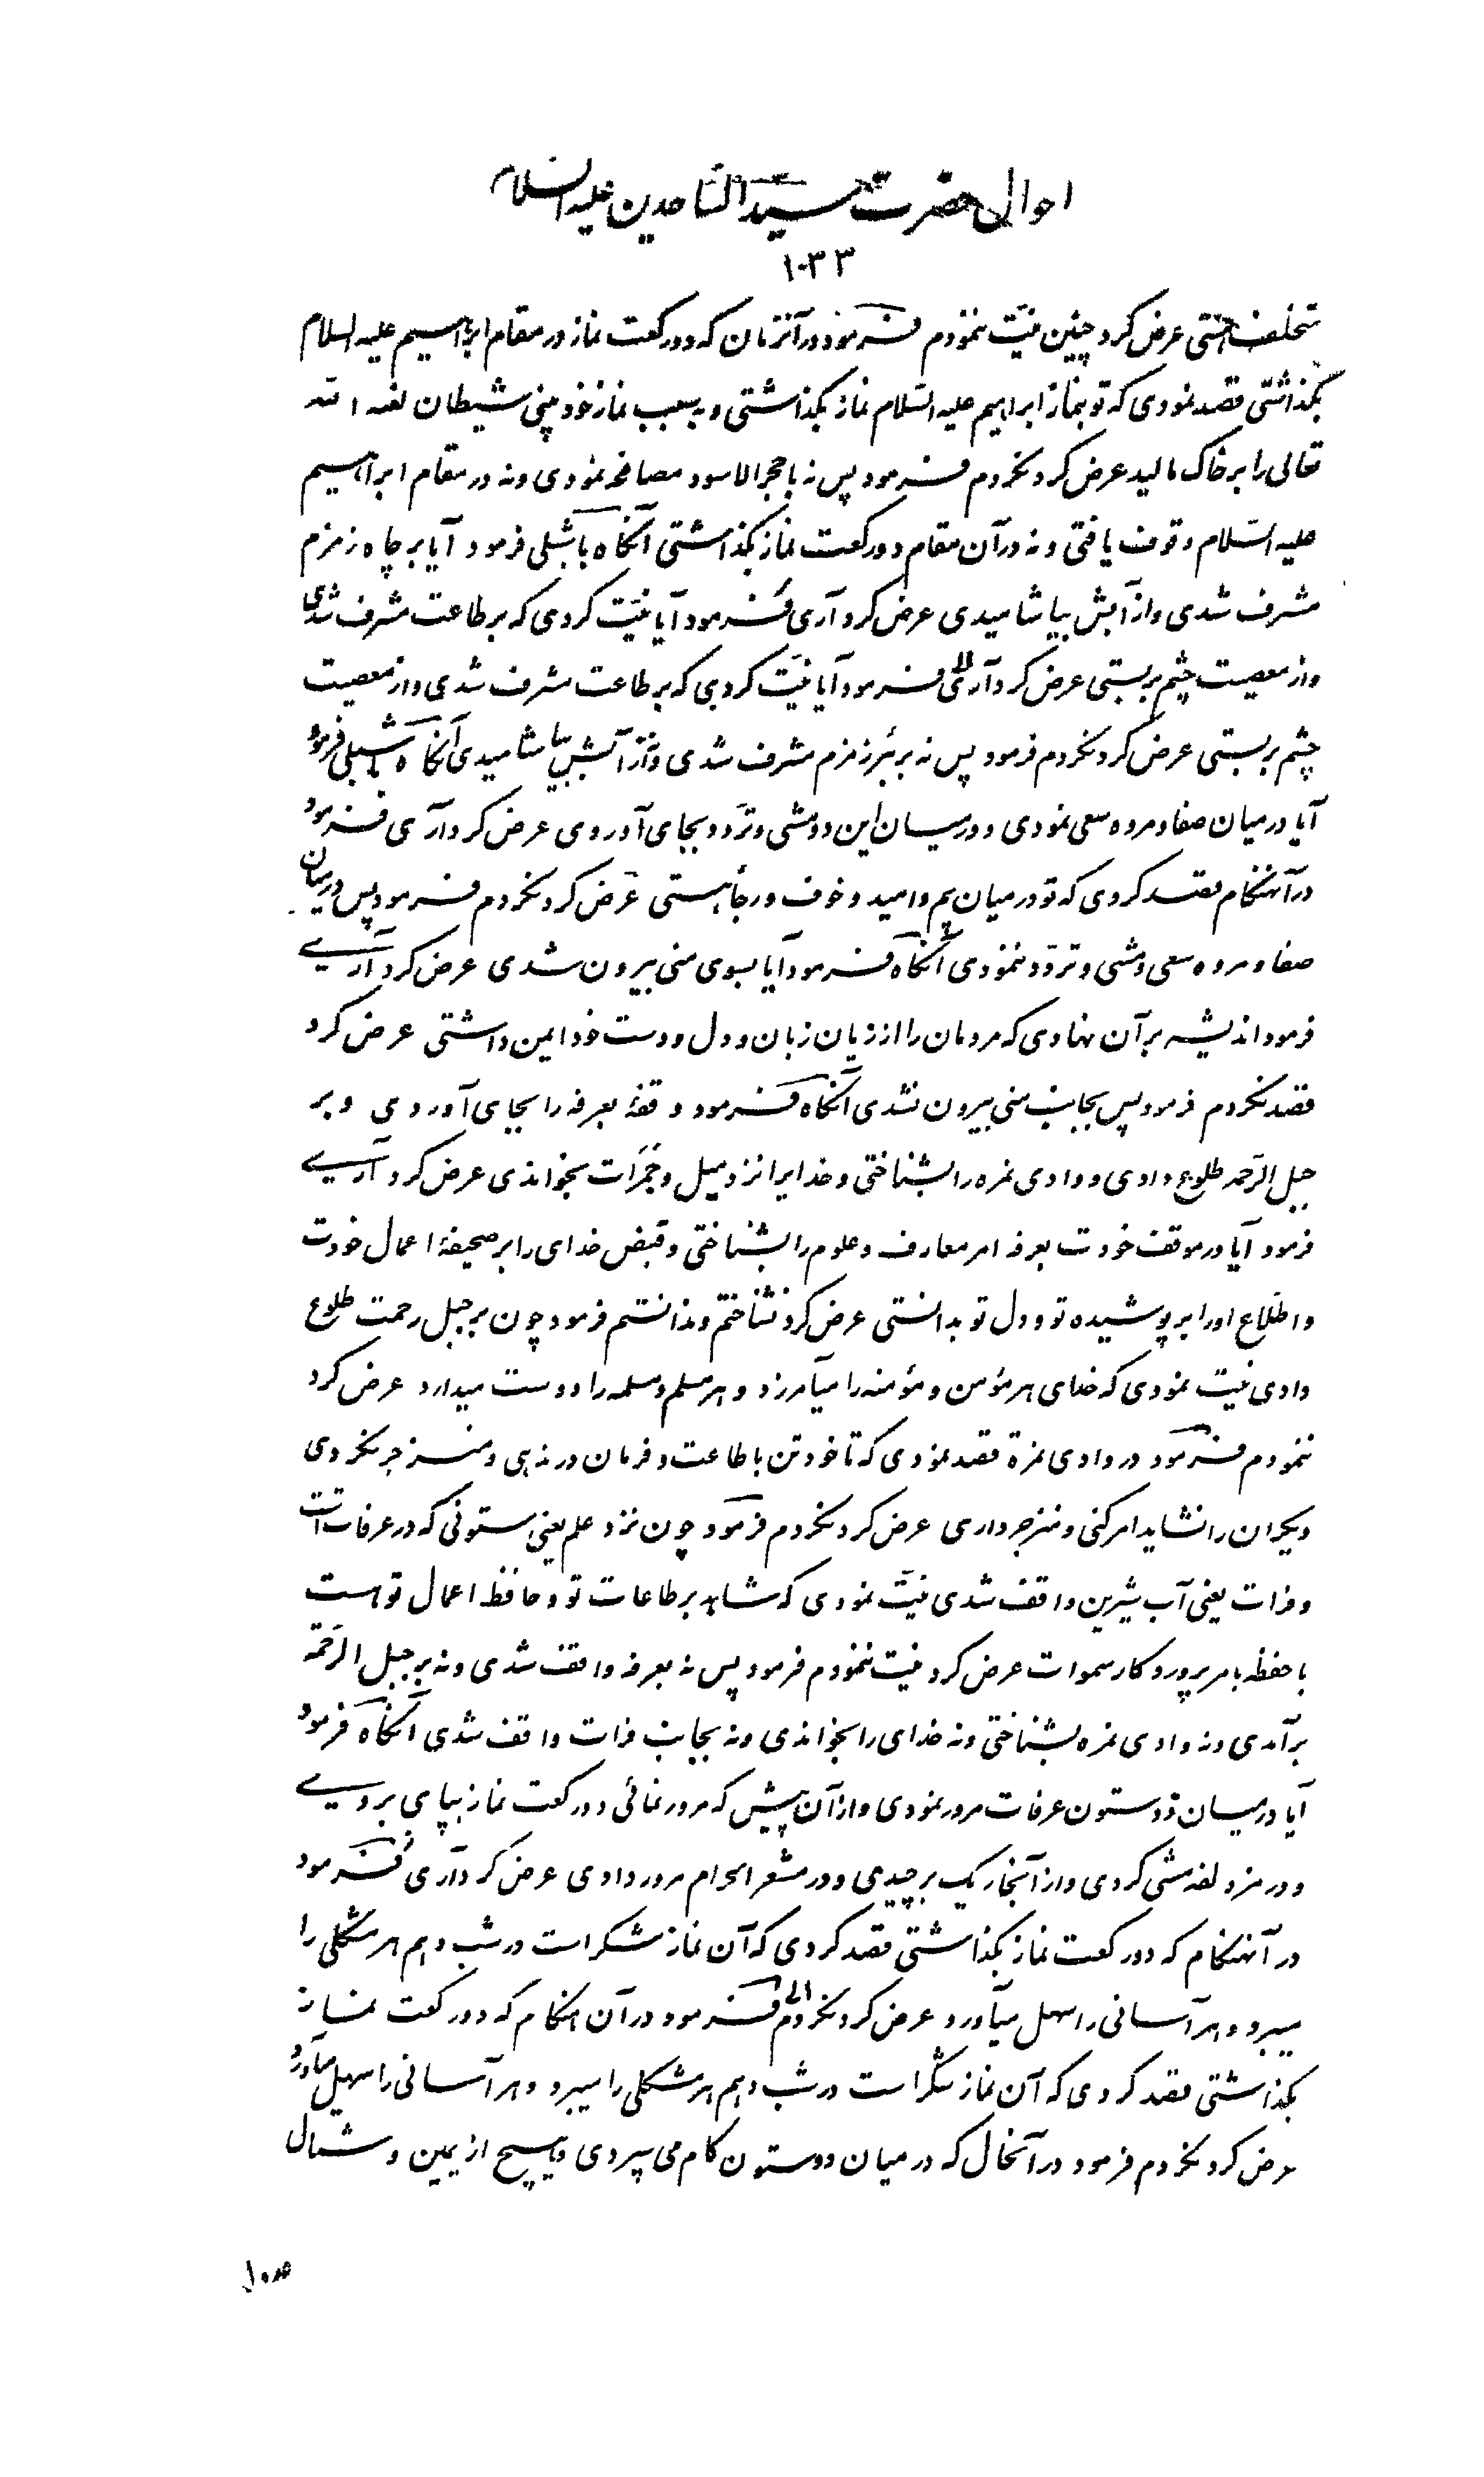 احوال حضرت سید الساجدین علیه السلام
۱۰۳۳
تخلف جستی عرض کرد چنین نیت ننمودم فرمود در آنزمان که دو رکعت نماز در مقام ابراهیم علیه السلام
بگذاشتی قصد نمودی که تو بنماز ابراهیم علیه السلام نماز بگذاشتی و بسبب نماز خود بینی شیطان لعنه الله
تعالی را بر خاک مالید عرض کرد نکردم فرمود پس نه با حجر الاسود مصافحه نمودی و نه در مقام ابراهیم
علیه السلام وقوف یافتی و نه در آن مقام دو رکعت نماز بگذاشتی آنگاه با شبلی فرمود آیا بر چاه زمزم
مشرف شدی و از آبش بیاشامیدی عرض کرد آری فرمود آیا نیت کردی که بر طاعت مشرف شدی
و از معصیت چشم بر بستی عرض کرد آری فرمود آیا نیت کردی که بر طاعت مشرف شدی و از معصیت
چشم بر بستی عرض کرد نکردم فرمود پس نه بر بئر زمزم مشرف شدی و نه از آبش بیاشامیدی آنگاه با شبلی فرمود
آیا در میان صفا و مروه سعی نمودی و در میان این دو مشی و تردد بجای آوردی عرض کرد آری فرمود
در آنهنگام قصد کردی که تو در میان بیم و امید و خوف و رجا هستی عرض کرد نکردم فرمود پس در میان
صفا و مروه سعی و مشی و تردد ننمودی آنگاه فرمود آیا بسوی منی بیرون شدی عرض کرد آری
فرمود اندیشه بر آن نهادی که مردمان را از زیان زبان و دل و دست خود ایمن داشتی عرض کرد
قصد نکردم فرمود پس بجانب منی بیرون نشدی آنگاه فرمود وقفهٔ بعرفه را بجای آوردی و بر
جبل الرحمه طلوع دادی و وادی نمره را بشناختی و خدایرا نزد میل و جمرات بخواندی عرض کرد آری
فرمود آیا در موقف خودت بعرفه امر معارف و علوم را بشناختی و قبض خدای را بر صحیفهٔ اعمال خودت
و اطلاع او را بر پوشیده تو و دل تو بدانستی عرض کرد نشناختم و ندانستم فرمود چون بر جبل رحمت طلوع
دادی نیت نمودی که خدای هر مؤمن و مؤمنه را میآمرزد و هر مسلم و مسلمه را دوست میدارد عرض کرد
ننمودم فرمود در وادی نمرة قصد نمودی که تا خود تن باطاعت و فرمان در ندهی و منزجر نگردی
دیگران را نشاید امر کنی و منزجر داری عرض کرد نکردم فرمود چون نزد علم یعنی ستونی که در عرفات است
و فرات یعنی آب شیرین واقف شدی نیت نمودی که شاهد بر طاعات تو و حافظ اعمال تو است
با حفظه بامر پروردگار سموات عرض کرد نیت ننمودم فرمود پس نه بعرفه واقف شدی و نه بر جبل الرحمة
برآمدی و نه وادی نمره بشناختی و نه خدای را بخواندی و نه بجانب فرات واقف شدی آنگاه فرمود
آیا در میان دو ستون عرفات مرور نمودی و از آن پیش که مرور نمائی دو رکعت نماز بپای بردی
و در مزدلفه مشی کردی و از آنجا ریگ برچیدی و در مشعر الحرام مرور دادی عرض کرد آری فرمود
در آنهنگام که دو رکعت نماز بگذاشتی قصد کردی که آن نماز شکر است در شب دهم هر مشکلی را
میبرد و هر آسانی را سهل میآورد عرض کرد نکردم الی فرمود در آن هنگام که دو رکعت نماز
بگذاشتی قصد کردی که آن نماز شکر است در شب دهم هر مشکلی را میبرد و هر آسانی را سهل میآورد
عرض کرد نکردم فرمود در آنحال که در میان دو ستون گام می سپردی و هیچ از یمین و شمال